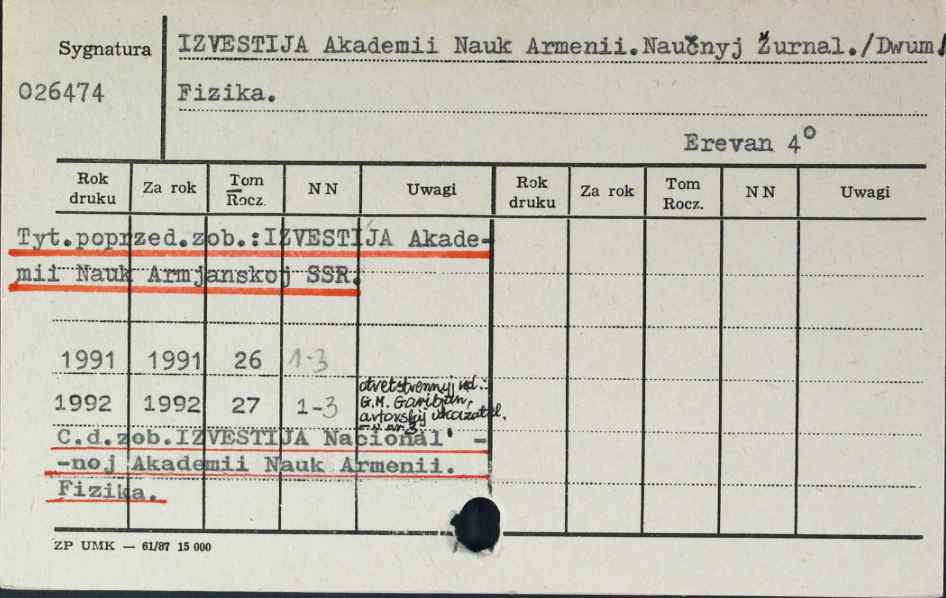 Sygnatura
026474
IZVESTIJA Akademii Nauk Armenii.Naučnyj Žurnal./Dwum/
Fizika.
Erevan 4°
Rok druku Za rok Tom Rocz. NN Uwagi Rok druku Za rok Tom Rocz. NN Uwagi
Tyt.poprzed.zob.:IZVESTIJA Akade-
mii Nauk Armjanskoj SSR.
1991 1991 26 1-3
otvetstvennyj red.:
G.M. Garibjan,
1992 1992 27 1-3
avtorskij ukazatel.
nr 3
C.d.zob.IZVESTIJA Nacional' -
-noj Akademii Nauk Armenii.
Fizika.
ZP UMK — 61/87 15 000